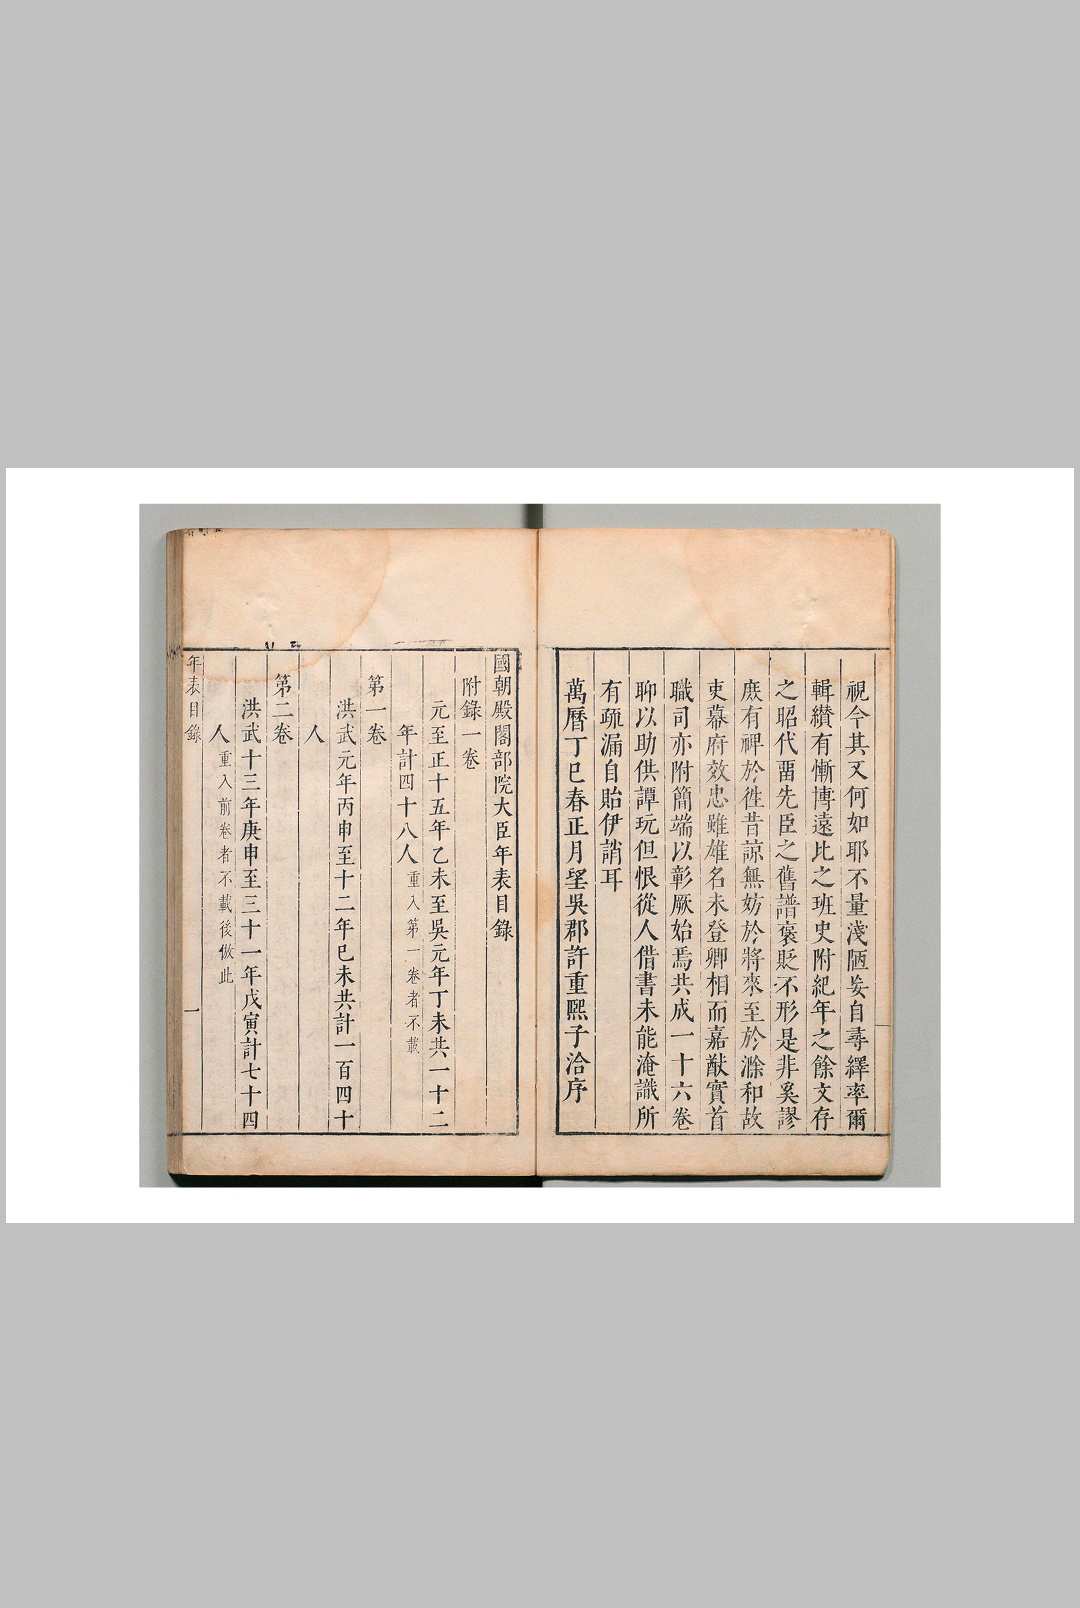 視今其又何如耶不量淺陋妄自尋繹率爾
輯纉有慚博遠比之班史附紀年之餘文存
之昭代畱先臣之舊譜褒貶不形是非奚謬
庻有裨於徃昔諒無妨於將來至於滁和故
吏幕府效忠雖雄名未登卿相而嘉猷實首
職司亦附簡端以彰厥始焉共成一十六卷
聊以助供譚玩但恨從人借書未能淹識所
有疏漏自貽伊誚耳
萬曆丁巳春正月朢吳郡許重熙子洽序
國朝殿閣部院大臣年表目錄
附錄一卷
元至正十五年乙未至吳元年丁未共一十二
年計四十八人重入第一卷者不載
第一卷
洪武元年丙申至十二年巳未共計一百四十
人
第二卷
洪武十三年庚申至三十一年戊寅計七十四
人重入前卷者不載後倣此
年表目錄 一